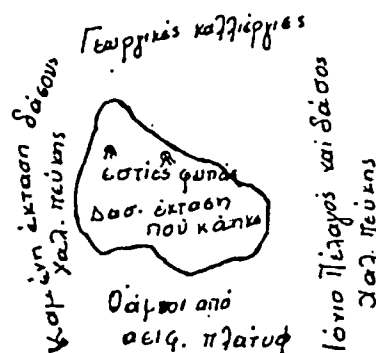 Γεωργικές καλλιέργιες
Καμένη έκταση δάσους
χαλ. πεύκης
εστίες φωτιάς
Δασ. έκταση
πού κάηκε
Ιόνιο Πέλαγος και δάσος
χαλ. πεύκης
Θάμνοι από
αειφ. πλατυφ